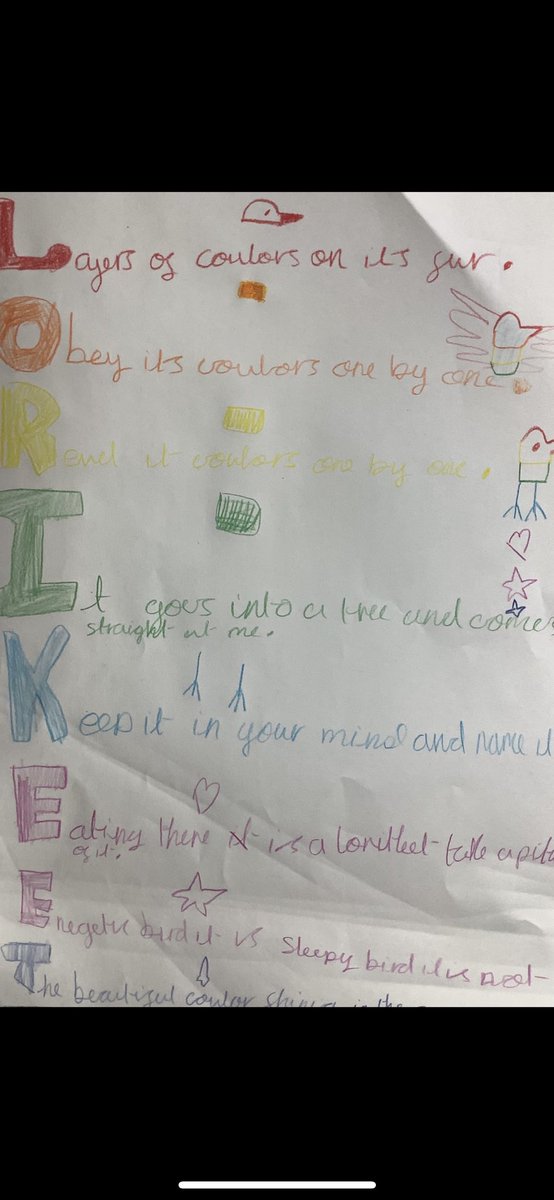 Layers of coulors on its fur.
Obey its coulors one by one.
it coulors one by one.
It goes into a tree and comes
straight at me.
Keep it in your mind and name it
Eating there it is a take a
of it.
Enegetic bird it is sleepy bird it is not
The beautiful coulor in the